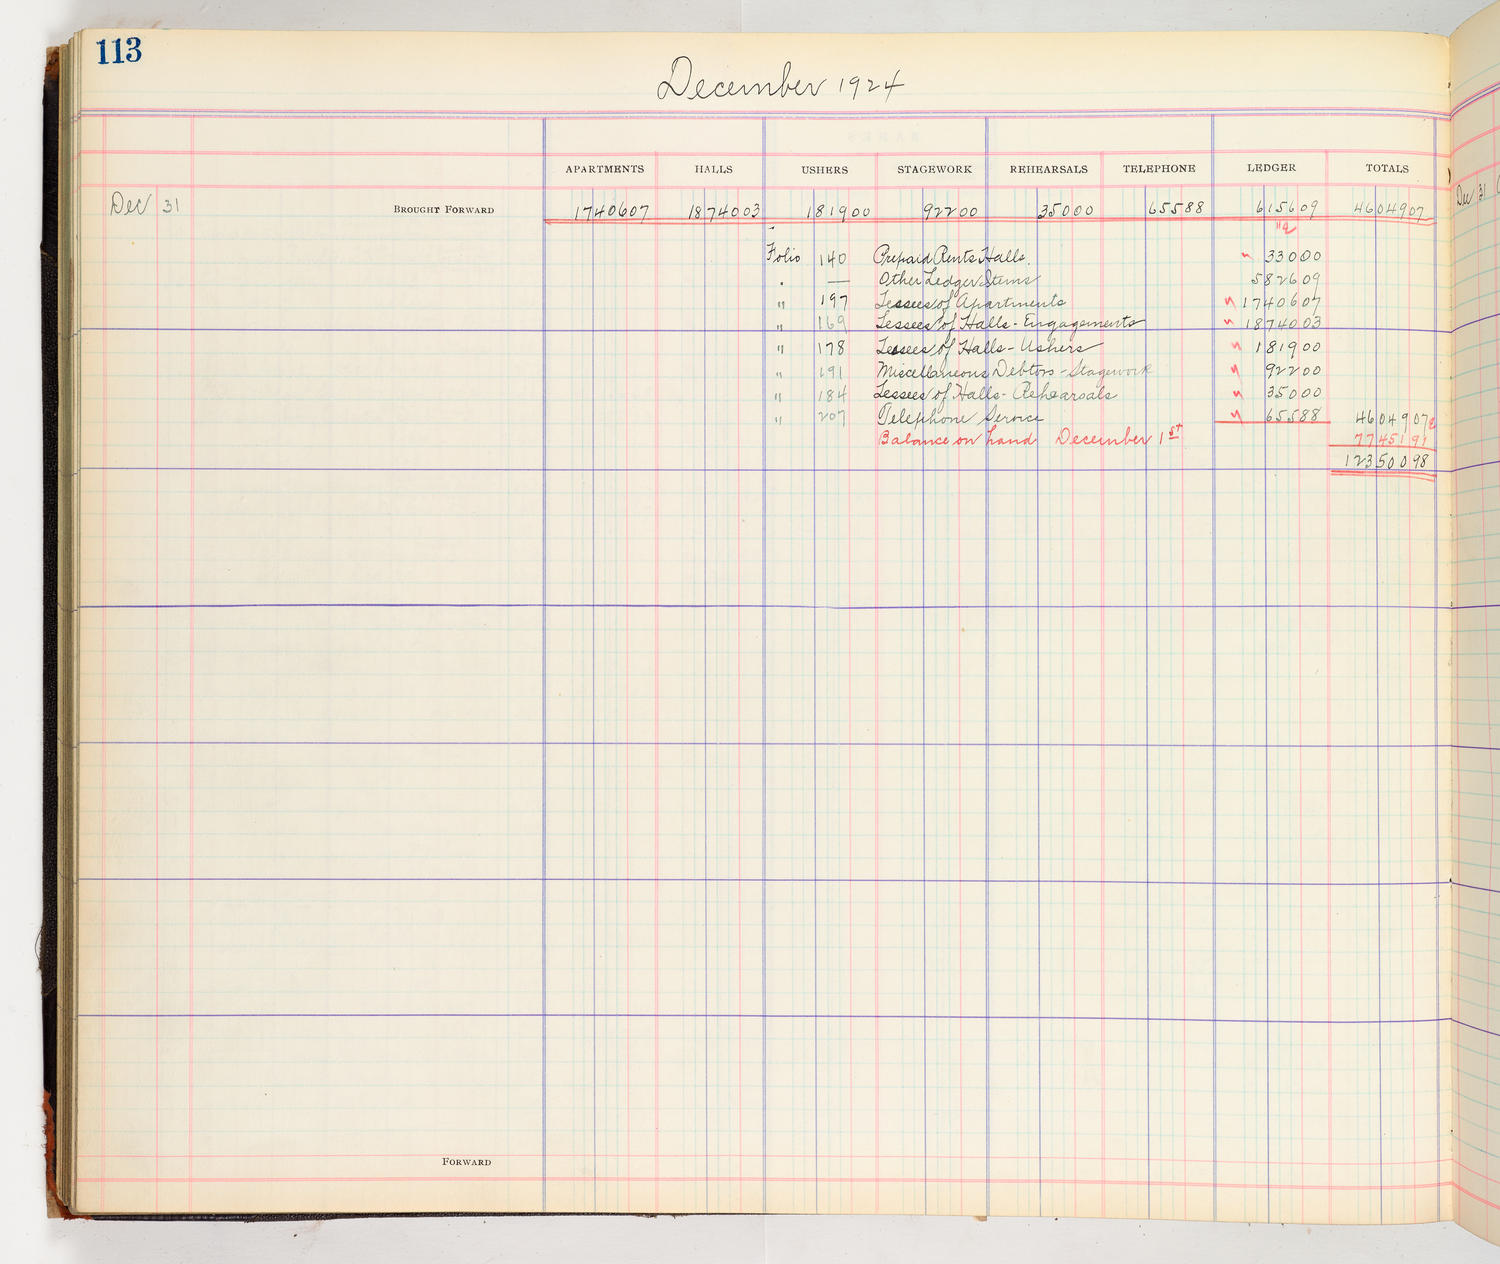 113
December 1924
APARTMENTS HALLS USHERS STAGEWORK REHEARSALS TELEPHONE LEDGER TOTALS
Dec 31 BROUGHT FORWARD 1740607 1874003 181900 92200 35000 65588 615609 4604907
Folio 140 Prepaid Rents Halls. 33000
" — Other Ledger Items 582609
" 197 Lessees of Apartments 1740607
" 169 Lessees of Halls - Engagements 1874003
" 178 Lessees of Halls - Ushers 181900
" 191 Miscellaneous Debtors - Stagework 92200
" 184 Lessees of Halls - Rehearsals 35000
" 207 Telephone Service 65588 4604907
Balance on hand December 1st 7745191
12350098
FORWARD
Dec 31